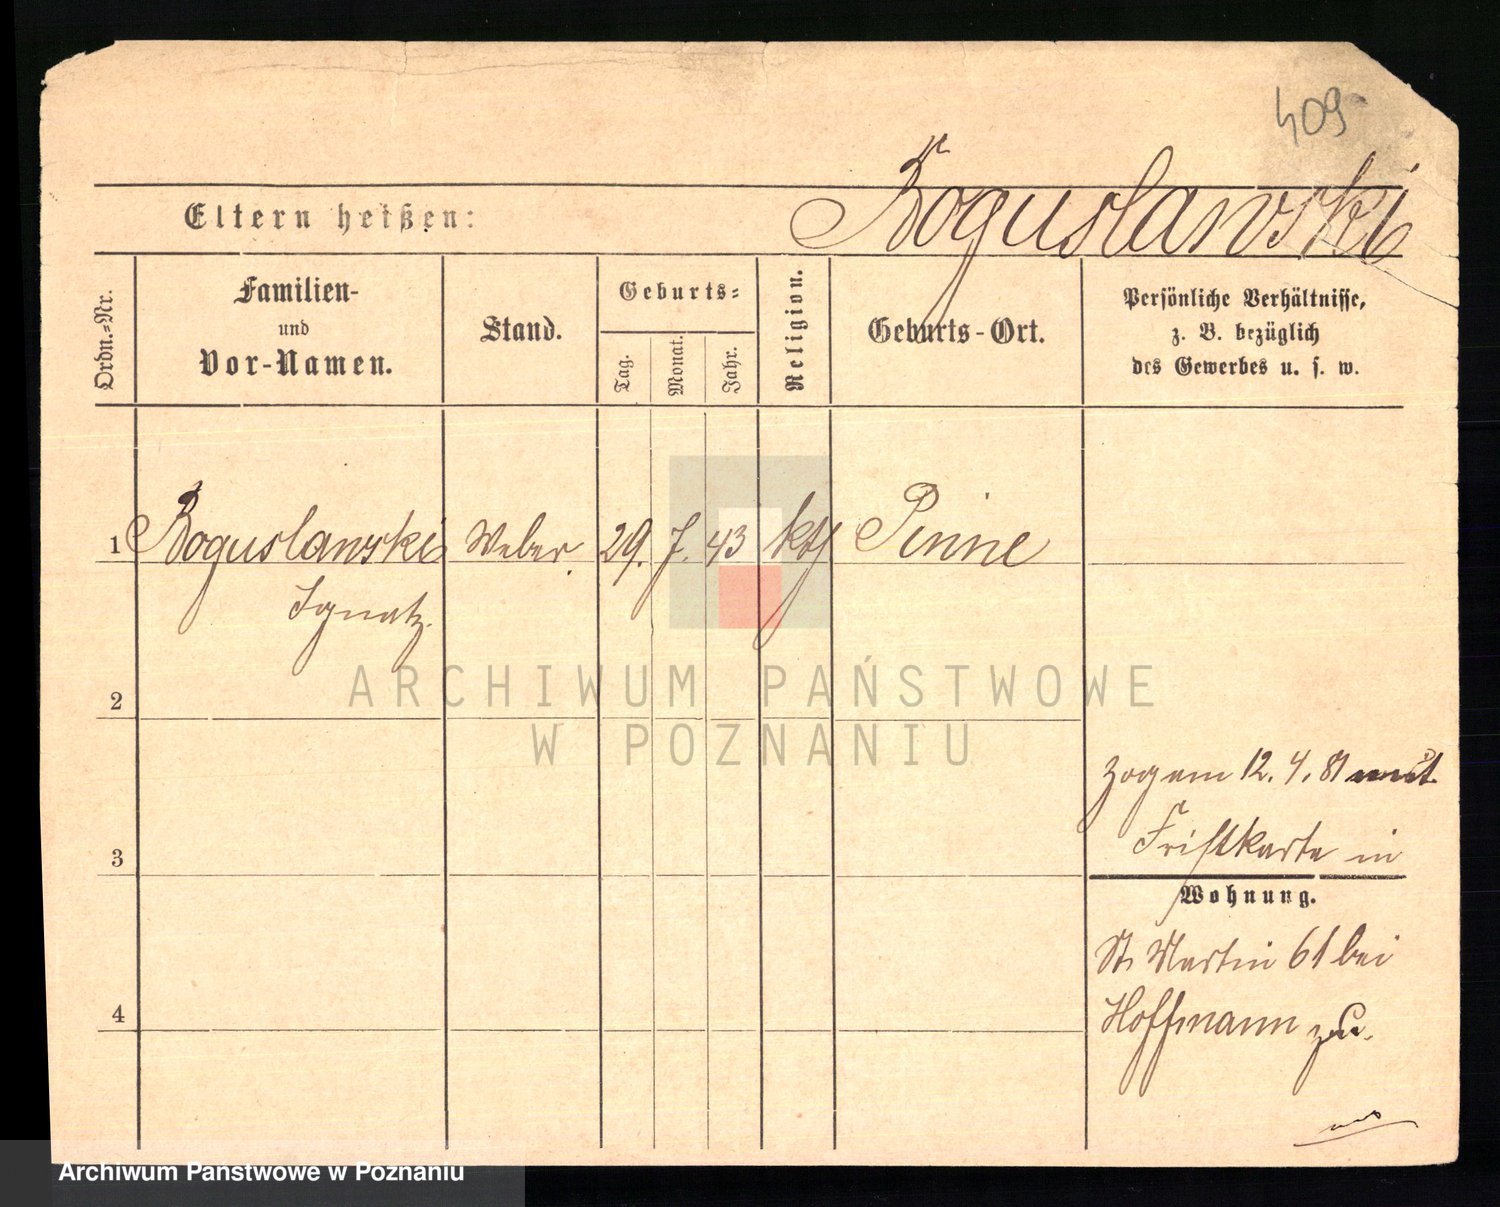 409
Boguslawski
Eltern heißen:
Ordn.-Nr.
Familien-
und
Vor-Namen.
Stand.
Geburts-
Tag.
Monat.
Jahr.
Religion.
Geburts-Ort.
Persönliche Verhältnisse,
z. B. bezüglich
des Gewerbes u. s. w.
1 Boguslawski Weber 29. 7. 43 kth Pinne
Ignatz.
2
3
4
zog am 12. 4. 81 mit
Fristkarte in
Wohnung.
St. Martin 61 bei
Hoffmann zu.
ARCHIWUM PAŃSTWOWE
W POZNANIU
Archiwum Państwowe w Poznaniu